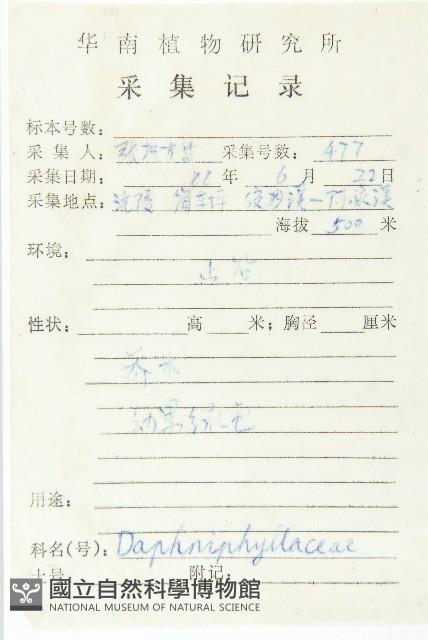 华南植物研究所
采集记录
标本号数:
采集人: 采集号数: 477
采集日期: 88年 6月 22日
采集地点: 沅陵
海拔 500 米
环境:
山谷
性状: 高 米; 胸径 厘米
乔木
幼果绿色
用途:
科名(号): Daphniphyllaceae
附记:
國立自然科學博物館
NATIONAL MUSEUM OF NATURAL SCIENCE